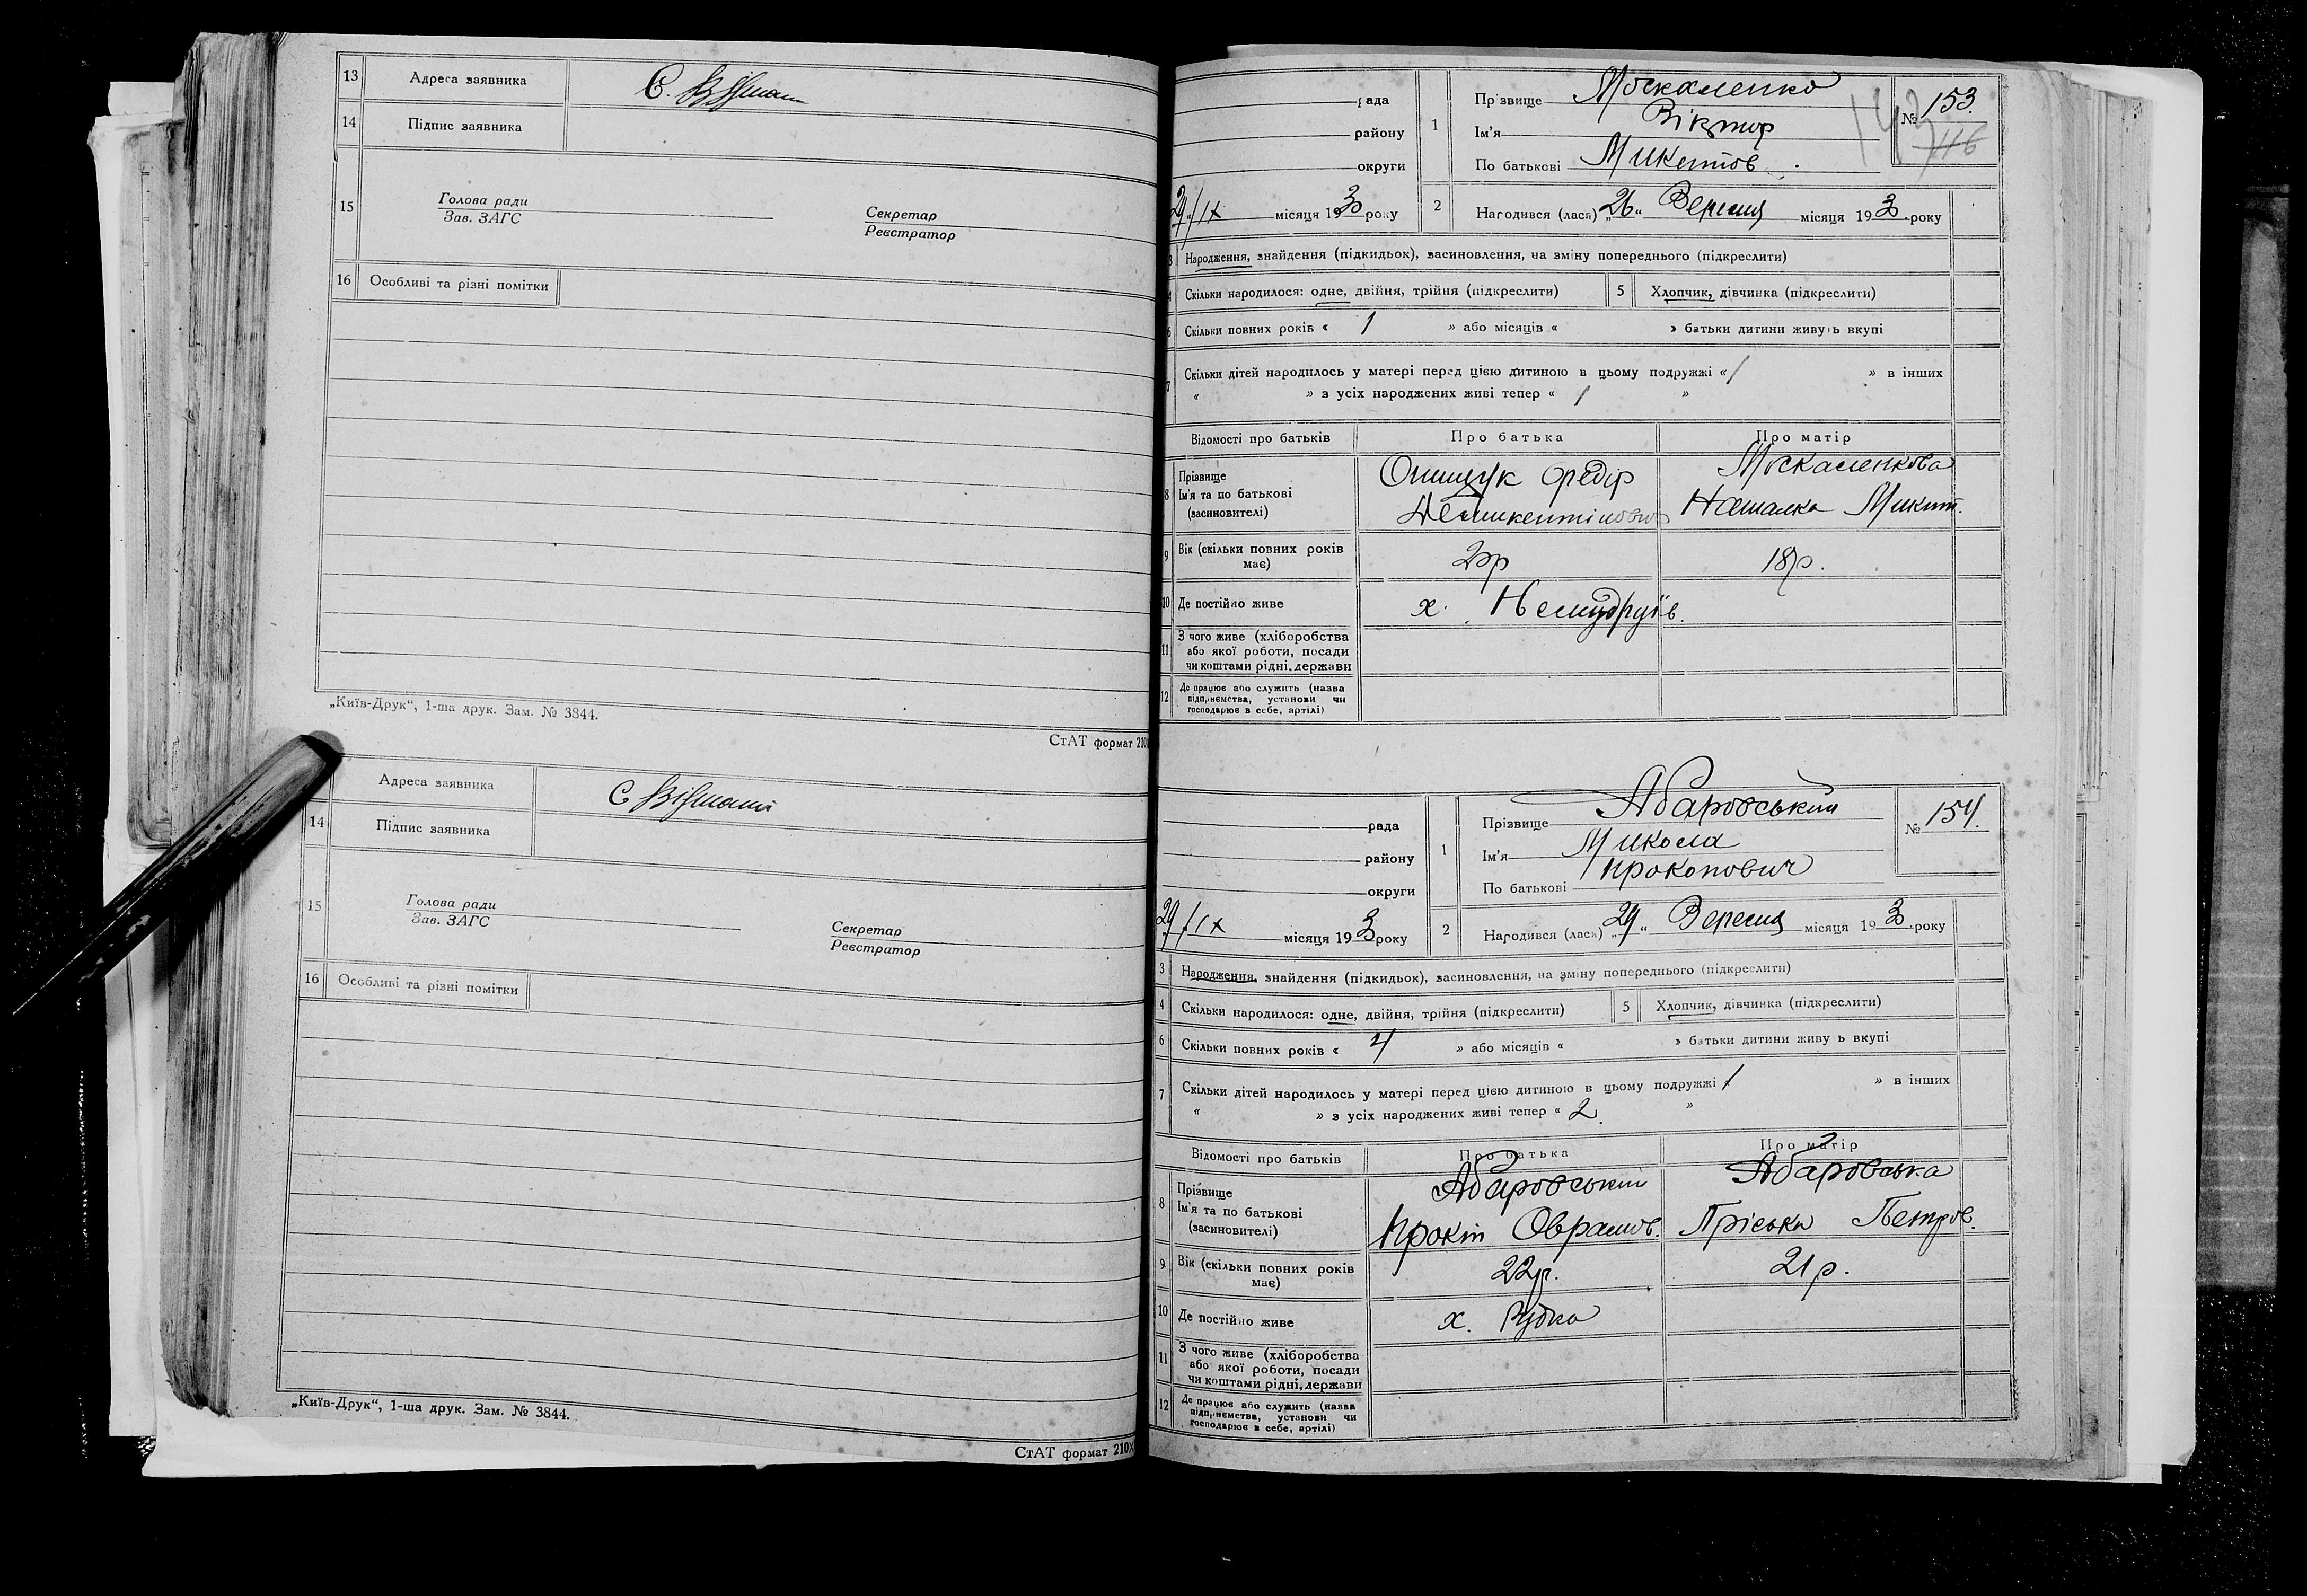 13 Адреса заявника С.
14 Підпис заявника
15 Голова ради
Зав. ЗАГС
Секретар
Реєстратор
16 Особливі та різні помітки
„Київ-Друк“, 1-ша друк. Зам. № 3844.
СтАТ формат 210
Адреса заявника С
14 Підпис заявника
15 Голова ради
Зав. ЗАГС
Секретар
Реєстратор
16 Особливі та різні помітки
„Київ-Друк“, 1-ша друк. Зам. № 3844.
СтАТ формат 210×
рада
району
округи
29/IX місяця 1930 року
1 Прізвище Москаленко
Ім'я Віктор
По батькові Микитов.
№ 153
116
2 Народився (лася) „26“ Вересня місяця 1930 року
3 Народження, знайдення (підкидьок), засиновлення, на зміну попереднього (підкреслити)
4 Скільки народилося: одне, двійня, трійня (підкреслити) 5 Хлопчик, дівчинка (підкреслити)
6 Скільки повних років « 1 » або місяців « » батьки дитини живуть вкупі
7 Скільки дітей народилось у матері перед цією дитиною в цьому подружжі « 1 » в інших
« » з усіх народжених живі тепер « 1 »
Відомості про батьків Про батька Про матір
8 Прізвище
Ім'я та по батькові
(засиновителі)
Онищук Федір
Москаленкова
Наталка Микит.
9 Вік (скільки повних років
має)
20р 18р.
10 Де постійно живе х.
11 З чого живе (хліборобства
або якої роботи, посади
чи коштами рідні, держави
12 Де працює або служить (назва
підприємства, установи чи
господарює в себе, артілі)
рада
району
округи
29/IX місяця 1930 року
1 Прізвище Абаровський
Ім'я Микола
По батькові Прокопович
№ 154
2 Народився (лася) „29“ Вересня місяця 1930 року
3 Народження, знайдення (підкидьок), засиновлення, на зміну попереднього (підкреслити)
4 Скільки народилося: одне, двійня, трійня (підкреслити) 5 Хлопчик, дівчинка (підкреслити)
6 Скільки повних років « 4 » або місяців « » батьки дитини живу ь вкупі
7 Скільки дітей народилось у матері перед цією дитиною в цьому подружжі 1 » в інших
« » з усіх народжених живі тепер « 2 »
Відомості про батьків Про батька Про матір
8 Прізвище
Ім'я та по батькові
(засиновителі)
Абаровський Абаровська
Прокіп Оврамов. Пріська Петров.
9 Вік (скільки повних років
має)
22р. 21р.
10 Де постійно живе х. Рудка
11 З чого живе (хліборобства
або якої роботи, посади
чи коштами рідні, держави
12 Де працює або служить (назва
підприємства, установи чи
господарює в себе, артілі)